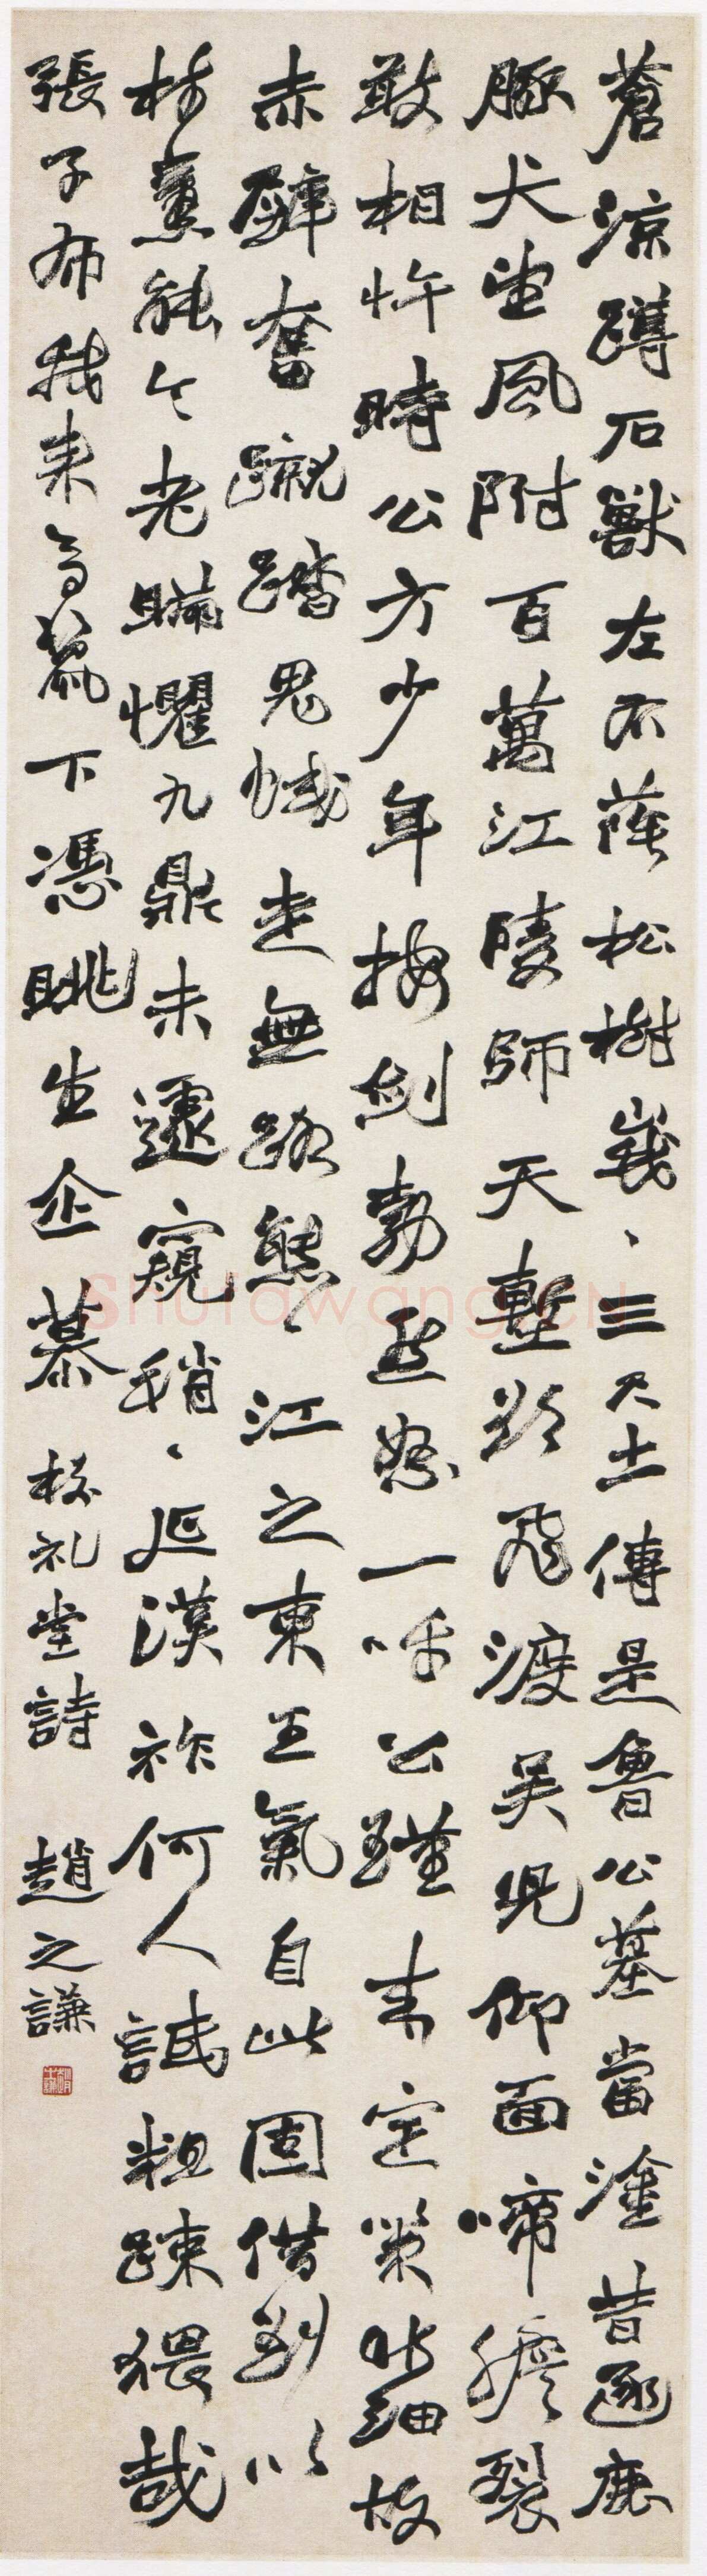 蒼涼蹲石獸左右蔭松樹峩、三尺土傳是魯公墓當塗昔逐鹿
豚犬望風附百萬江陵師天塹欲飛渡吳兒仰面啼膽裂
敢相忤時公方少年按劍勃然怒一呼公瑾來定策非細故
赤壁奮蹴踏鬼蜮走無路熊、江之東王氣自此固借荊以
樹黨能令老瞞懼九鼎未遽窺稍、延漢祚何人詆粗疎猥哉
張子布我來高冢下憑眺生企慕 校礼堂詩 趙之謙
Shufawang.CN